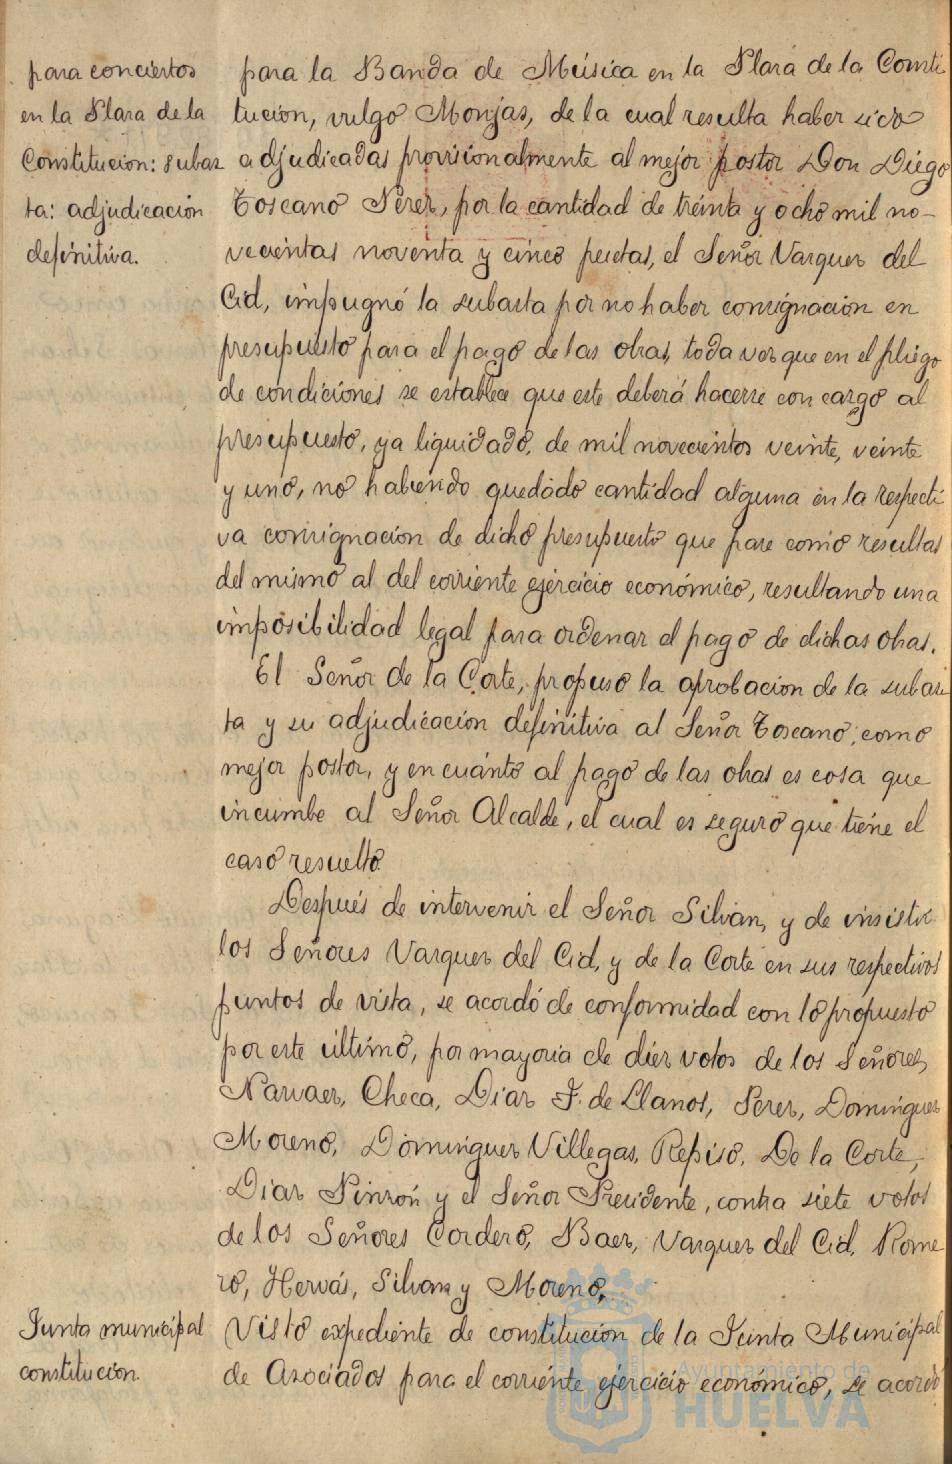 para conciertos
en la Plaza de la
Constitución: subas
ta: adjudicación
definitiva.
para la Banda de Música en la Plaza de la Consti
tución, vulgo Monjas, de la cual resulta haber sido
adjudicadas provisionalmente al mejor postor Don Diego
Toscano Perez, por la cantidad de treinta y ocho mil no-
vecientas noventa y cinco pesetas, el Señor Vazquez del
Cid, impugnó la subasta por no haber consignación en
presupuesto para el pago de las obras, toda vez que en el pliego
de condiciones se establece que este deberá hacerse con cargo al
presupuesto, ya liquidado, de mil novecientos veinte, veinte
y uno, no habiendo quedado cantidad alguna en la respecti
va consignación de dicho presupuesto que pase como resultas
del mismo al del corriente ejercicio económico, resultando una
imposibilidad legal para ordenar el pago de dichas obras.
El Señor de la Corte, propuso la aprobación de la subas
ta y su adjudicación definitiva al Señor Toscano, como
mejor postor, y en cuánto al pago de las obras es cosa que
incumbe al Señor Alcalde, el cual es seguro que tiene el
caso resuelto.
Después de intervenir el Señor Silvan, y de insistir
los Señores Vazquez del Cid, y de la Corte en sus respectivos
puntos de vista, se acordó de conformidad con lo propuesto
por este último, por mayoria de diez votos de los Señores,
Narvaez, Checa, Diaz F. de Llanos, Perez, Dominguez
Moreno, Dominguez Villegas, Repiso, De la Corte,
Diaz Pinzón y el Señor Presidente, contra siete votos
de los Señores Cordero, Baez, Vazquez del Cid, Rome
ro, Hervás, Silvan y Moreno.
Junta municipal
constitución.
Visto expediente de constitución de la Junta Municipal
de Asociados para el corriente ejercicio económico, se acordó
Ayuntamiento de
HUELVA